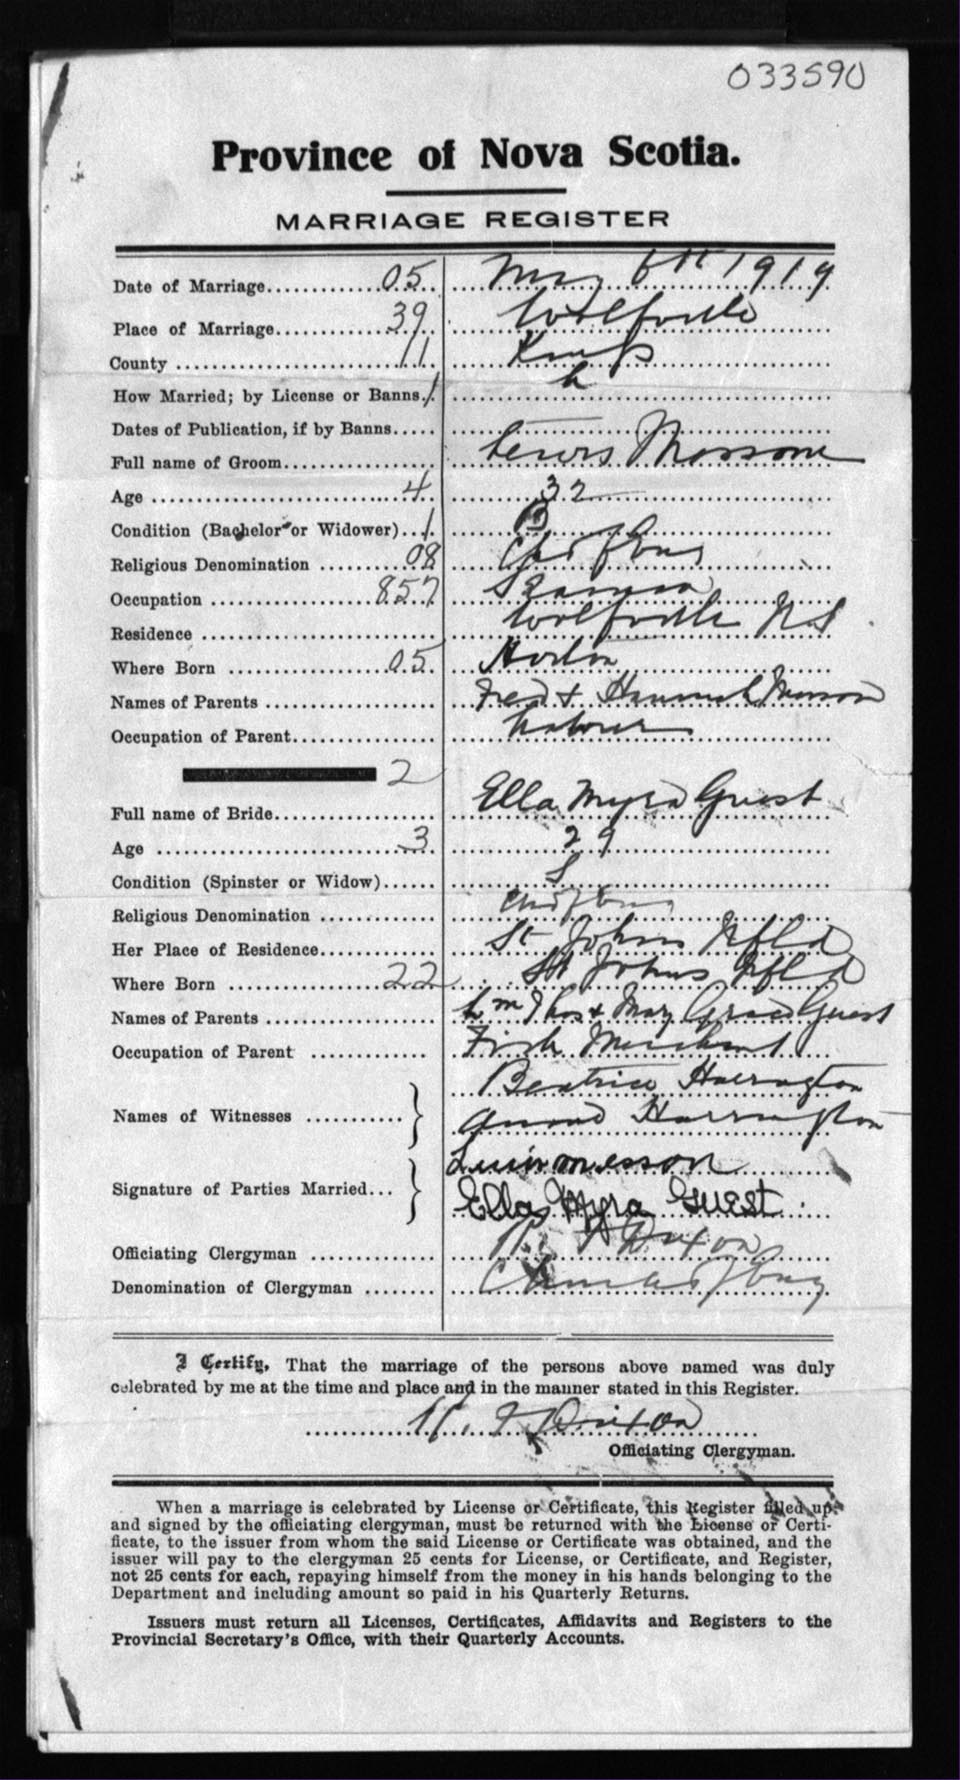 033590
Province of Nova Scotia.
MARRIAGE REGISTER
Date of Marriage 05 May 6th 1919
Place of Marriage 39 Wolfville
County 11 Kings
How Married; by License or Banns 1 L
Dates of Publication, if by Banns
Full name of Groom Lewis
Age 4 32
Condition (Bachelor or Widower) 1 B
Religious Denomination 08 Ch of Eng
Occupation 857 Seaman
Residence Wolfville N S
Where Born 05 Horton
Names of Parents Fred & Hannah
Occupation of Parent Labourer
2
Full name of Bride Ella Myra Guest
Age 3 29
Condition (Spinster or Widow) S
Religious Denomination Ch of Eng
Her Place of Residence St Johns Nfld
Where Born 22 St Johns Nfld
Names of Parents Wm Thos & Mary Grace Guest
Occupation of Parent Fish Merchant
Beatrice Harrington
Names of Witnesses Harrington
Signature of Parties Married
Ella Myra Guest
Officiating Clergyman R. F. Dixon
Denomination of Clergyman Church of Eng
I Certify, That the marriage of the persons above named was duly
celebrated by me at the time and place and in the manner stated in this Register.
R. F. Dixon
Officiating Clergyman.
When a marriage is celebrated by License or Certificate, this Register filled up
and signed by the officiating clergyman, must be returned with the License or Certi-
ficate, to the issuer from whom the said License or Certificate was obtained, and the
issuer will pay to the clergyman 25 cents for License, or Certificate, and Register,
not 25 cents for each, repaying himself from the money in his hands belonging to the
Department and including amount so paid in his Quarterly Returns.
Issuers must return all Licenses, Certificates, Affidavits and Registers to the
Provincial Secretary's Office, with their Quarterly Accounts.